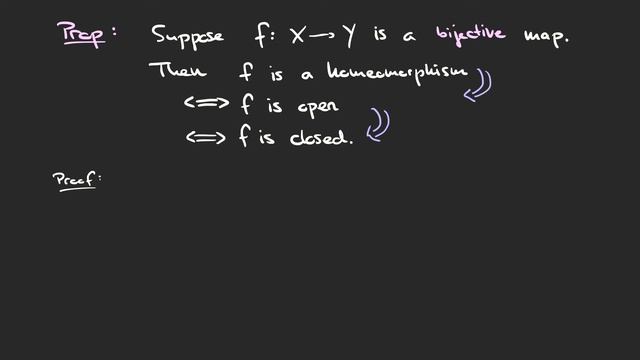 Prop: Suppose f: X → Y is a bijective map.
Then f is a homeomorphism
<=> f is open
<=> f is closed.
Proof: